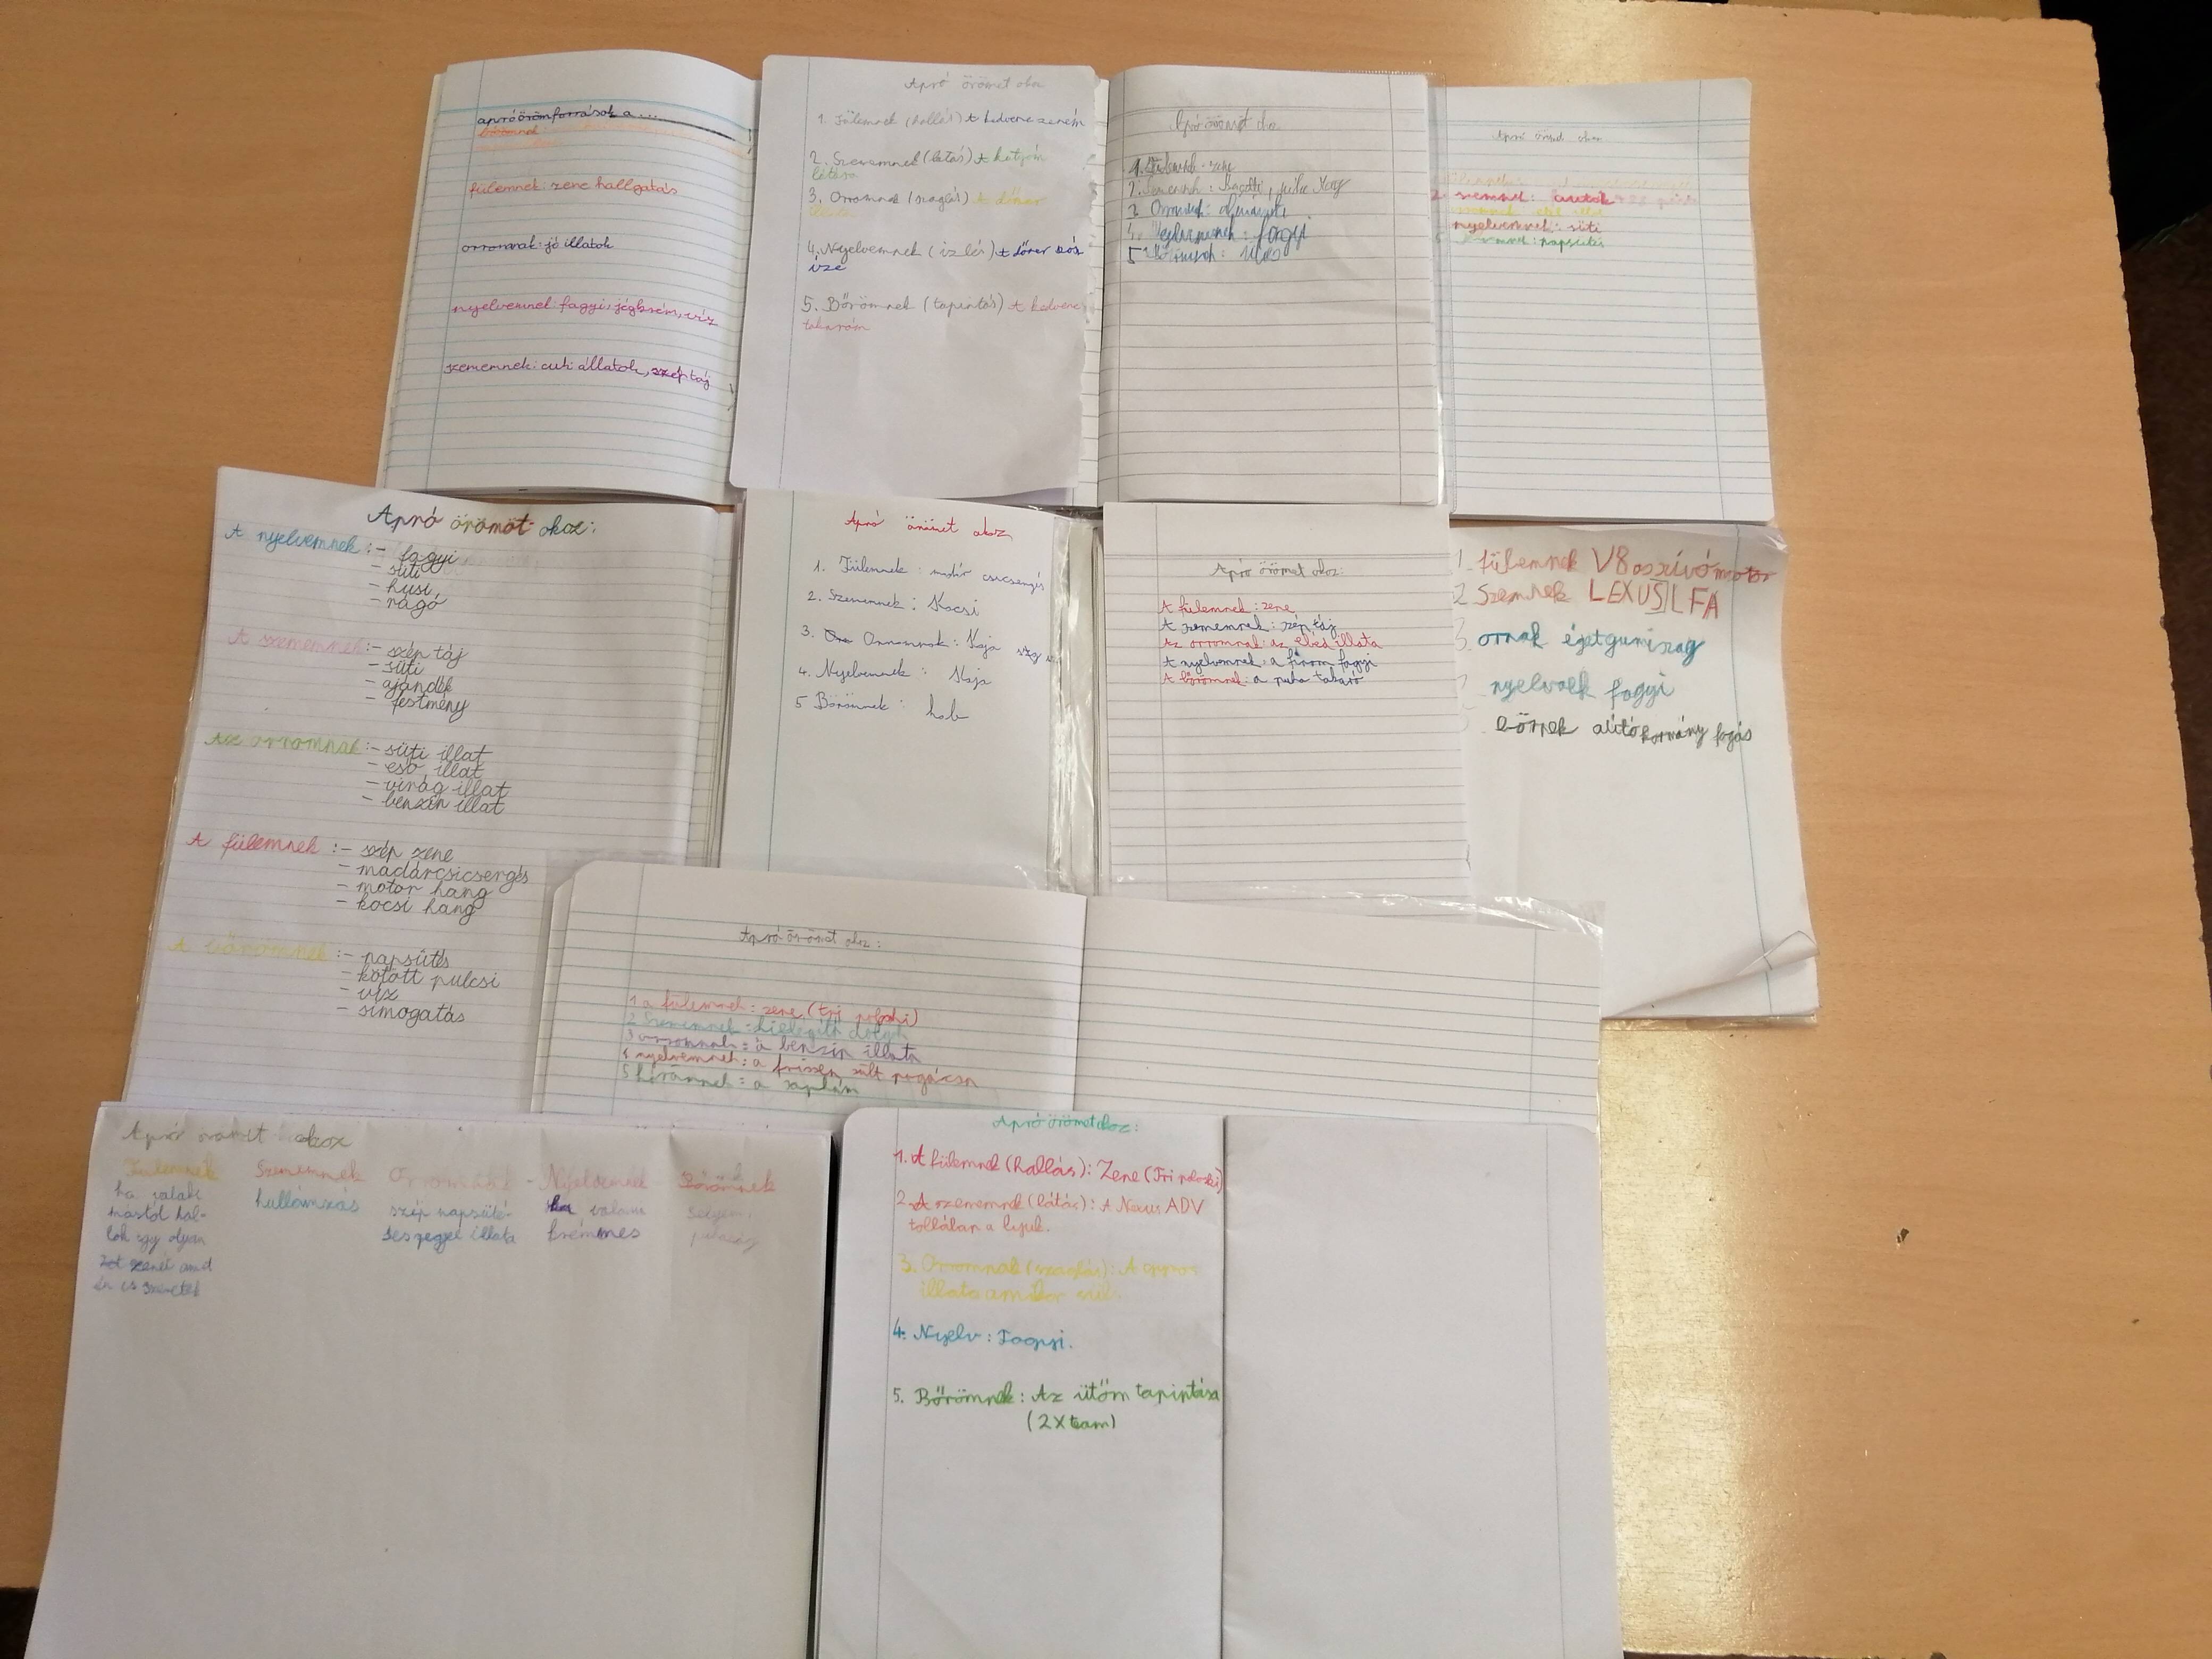 apró örömforrások a ...
bőrömnek:
fülemnek: zene hallgatás
orromnak: jó illatok
nyelvemnek fagyi, jégkrém, víz
szememnek: cuki állatok, szép táj
Apró örömet okoz
1. Fülemnek (hallás) A kedvenc zeném
2. Szememnek (látás) A kutyám
látása
3. Orromnak (szaglás) A döner
illata
4. Nyelvemnek (izlés) A döner sós
íze
5. Bőrömnek (tapintás) A kedvenc
takaróm
Apró örömet oko
1. zene
2. Szememnek :
3 Orromnak:
4. Nyelvemnek : fagyi
5
Apró örömet okoz
2. szemnek: autók
nyelvemnek: süti
napsütés
Apró örömöt okoz:
A nyelvemnek :- fagyi
- süti
- husi
- rágó
A szememnek :- szép táj
- süti
- ajándék
- festmény
Az orromnak :- süti illat
- eső illat
- virág illat
- benzin illat
A fülemnek :- szép zene
- madárcsicsergés
- motor hang
- kocsi hang
A bőrömnek :- napsütés
- kötött pulcsi
- víz
- simogatás
Apró örömet okoz
1. Fülemnek : madár csicsergés
2. Szememnek : Kocsi
3. Orromnak : Kaja
4. Nyelvemnek : Kaja
5 Bőrömnek : hab
Apró örömet okoz:
A fülemnek : zene
A szememnek : szép táj
Az orromnak: az ebéd illata
A nyelvemnek: a finom fagyi
A bőrömnek: a puha takaró
1. fülemnek V8 as szívómotor
2 Szemnek LEXUS LFA
3. ornak égetgumiszag
nyelvnek fagyi
bőrnek autókormány fogás
Apró örömet okoz:
1 a fülemnek: zene. (tri poloski)
2 Szememnek:
3 orromnak: a benzin illata
4 nyelvemnek: a frissen sült pogácsa
5 bőrömnek: a
Apró örömet okoz
Fülemnek Szememnek Orromnak - Nyelvemnek Bőrömnek
ha valaki hullámzás szép napsüté- ha valami selyem
mástól hal- ses reggel illata krémmes puhaság
lok egy olyan
zenét amit
én is szeretek
Apró örömet okoz:
1. A fülemnek (hallás): Zene (Tri poloski)
2. A szememnek (látás): A Nexus ADV
tollában a lyuk.
3. Orromnak (szaglás): A
illata amikor sül.
4. Nyelv: Fagyi.
5. Bőrömnek: Az ütőm tapintása
(2X team)